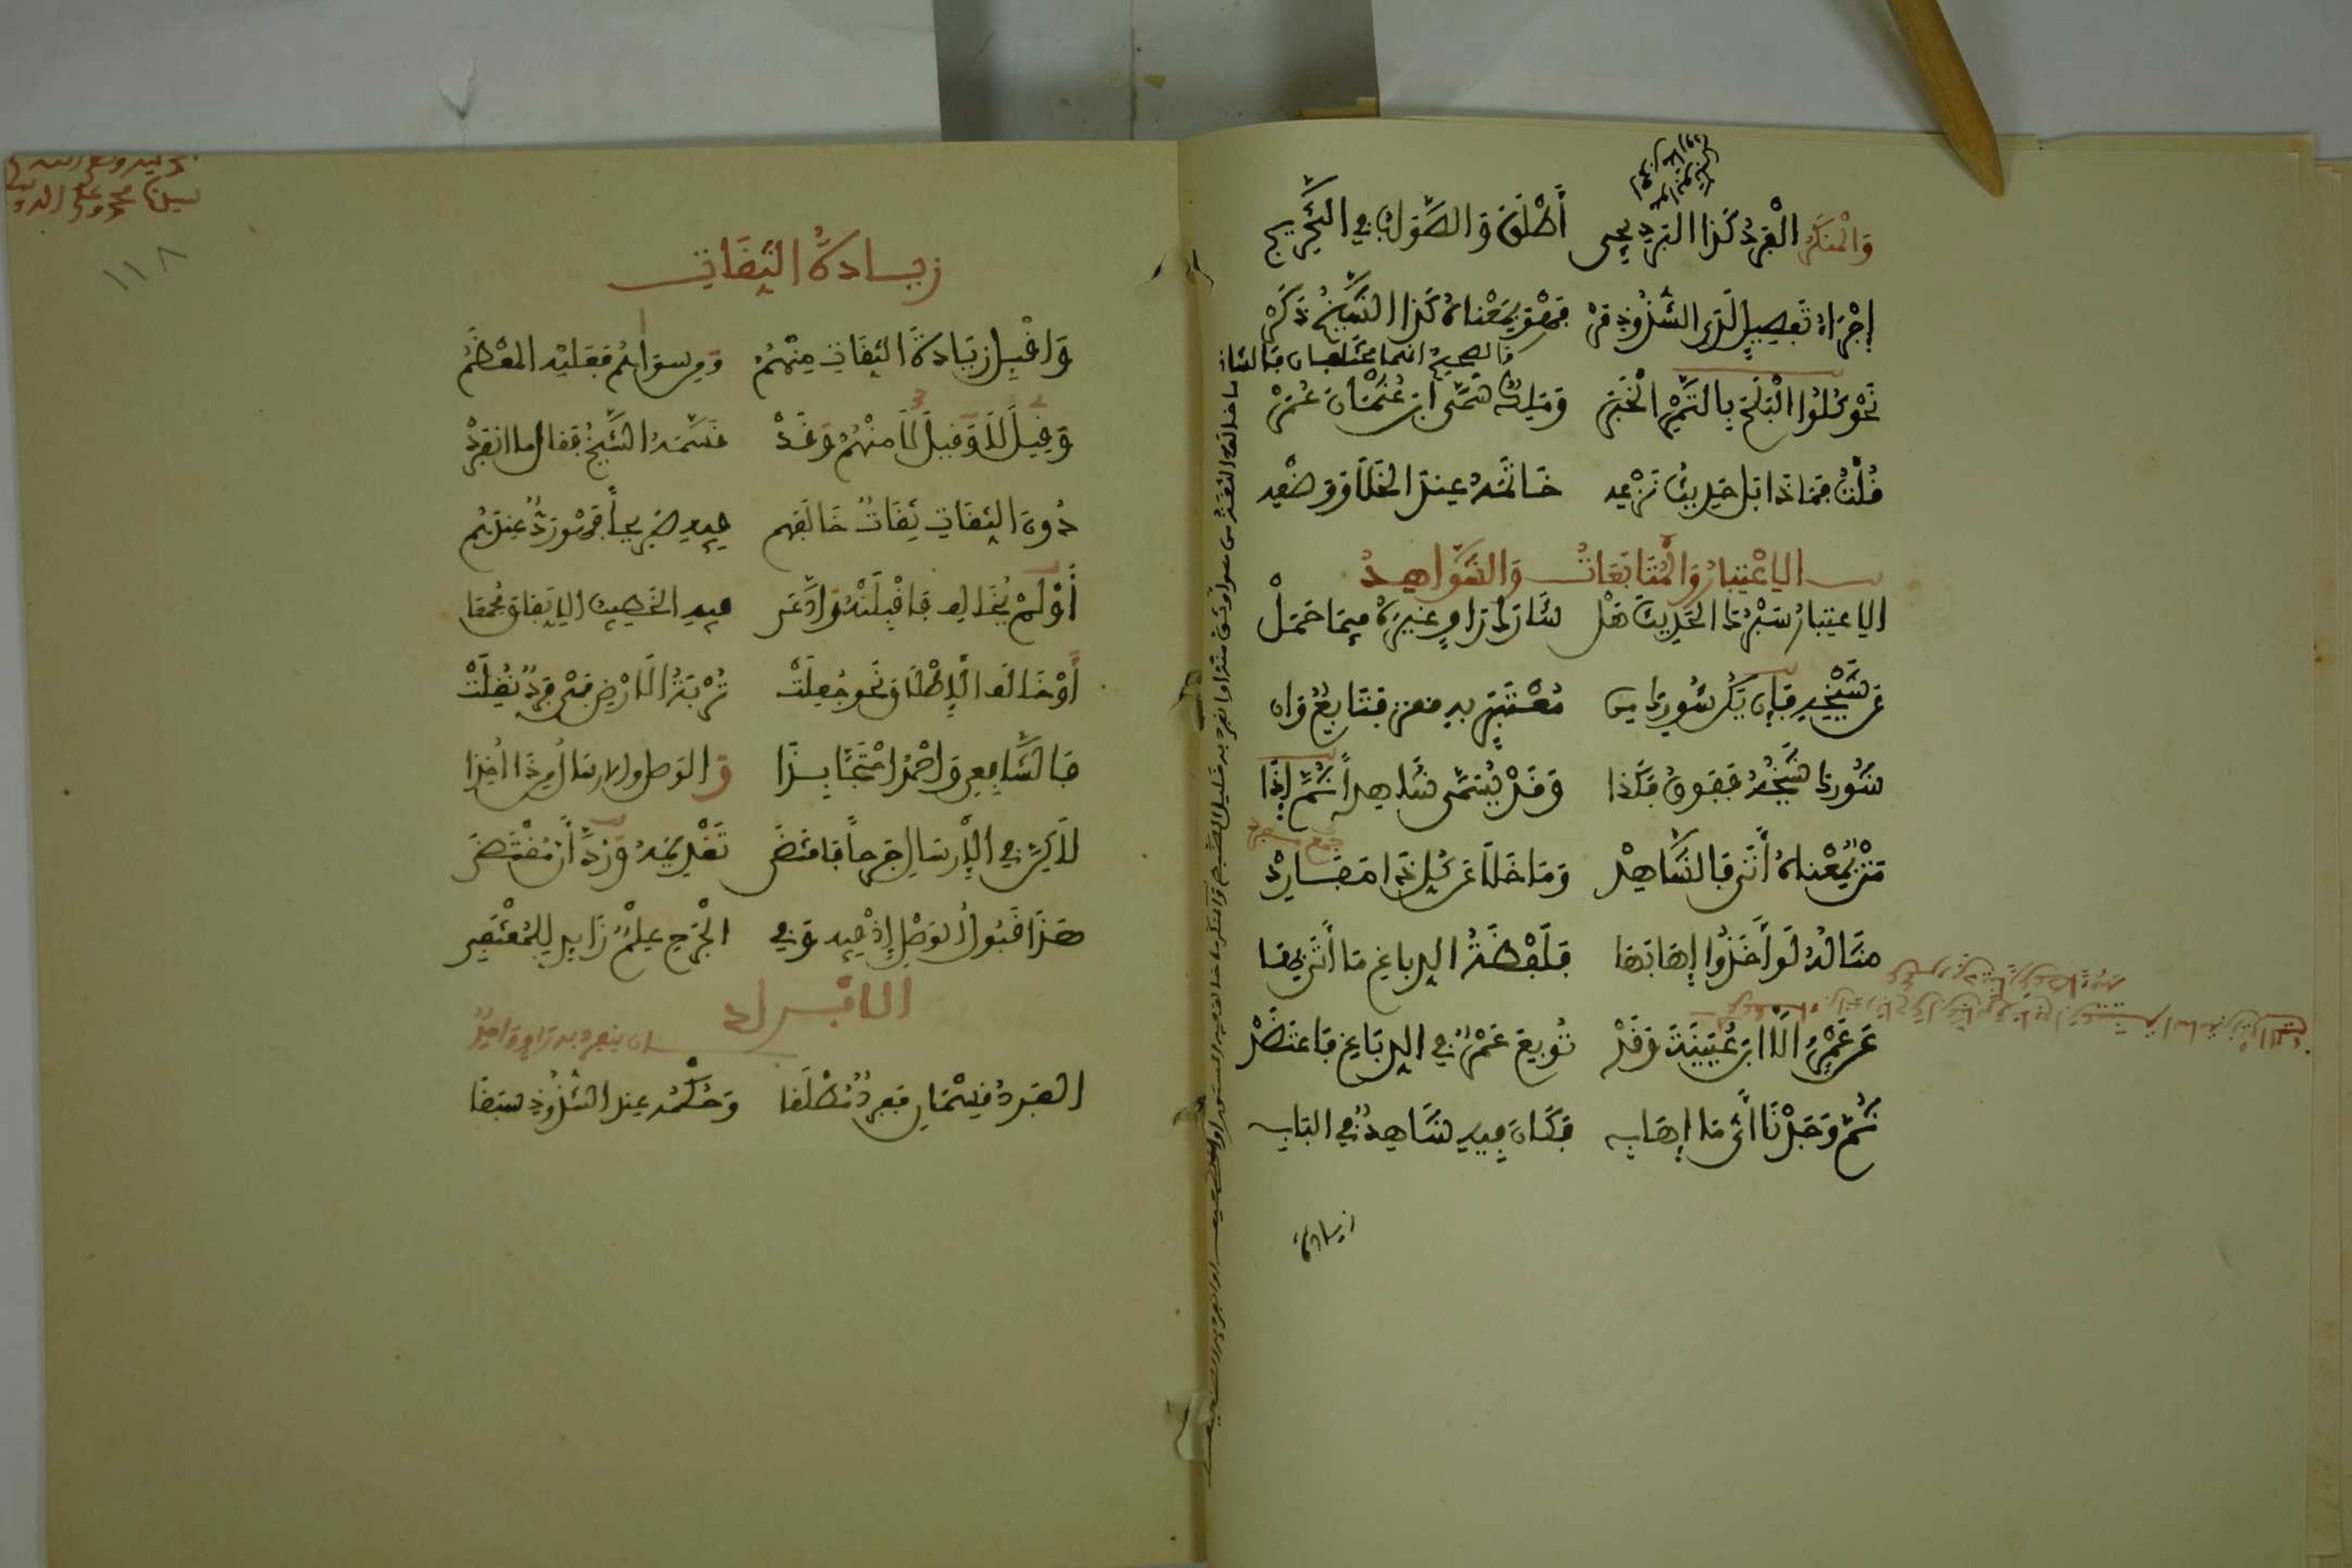 وَالْمُنْكَرُ الْفَرْدُ كَذَا الْبَرْدِيجِي أَطْلَقَ وَالصَّوَابُ فِي التَّخْرِيجِ
إِجْرَاءُ تَفْصِيلٍ لَدَى الشُّذُوذِ مَرْ فَهْوَ بِمَعْنَاهُ كَذَا الشَّيْخُ ذَكَرْ
نَحْوَ كُلُوا الْبَلَحَ بِالتَّمْرِ الْخَبَرْ وَمَالِكٌ سَمَّى ابْنَ عُثْمَانَ عُمَرْ
قُلْتُ فَمَاذَا بَلْ حَدِيثُ نَزْعِهِ خَاتَمَهُ عِنْدَ الْخَلَا وَوَضْعِهِ
الِاعْتِبَارُ وَالْمُتَابَعَاتُ وَالشَّوَاهِدُ
الِاعْتِبَارُ سَبْرُكَ الْحَدِيثَ هَلْ شَارَكَ رَاوٍ غَيْرَهُ فِيمَا حَمَلْ
عَنْ شَيْخِهِ فَإِنْ يَكُنْ شُورِكَ مِنْ مُعْتَبَرٍ بِهِ فَتَابِعٌ وَإِنْ
شُورِكَ شَيْخُهُ فَفَوْقُ فَكَذَا وَقَدْ يُسَمَّى شَاهِدًا ثُمَّ إِذَا
مَتْنٌ بِمَعْنَاهُ أَتَى فَالشَّاهِدُ وَمَا خَلَا عَنْ كُلِّ ذَا مَفَارِدُ
مِثَالُهُ لَوْ أَخَذُوا إِهَابَهَا فَلَفْظَةُ الدِّبَاغِ مَا أَتَى بِهَا
عَنْ عَمْرٍو الَّا ابْنُ عُيَيْنَةَ وَقَدْ تُوبِعَ عَمْرٌو فِي الدِّبَاغِ فَاعْتَضَدْ
ثُمَّ وَجَدْنَا أَيُّمَا إِهَابِ فَكَانَ فِيهِ شَاهِدٌ فِي الْبَابِ
زيادة
١١٨
زِيَادَةُ الثِّقَاتِ
وَاقْبَلْ زِيَادَةَ الثِّقَاتِ مِنْهُمُ وَمِنْ سِوَاهُمْ فَعَلَيْهِ الْمُعْظَمُ
وَقِيلَ لَا وَقِيلَ لَا مِنْهُمْ وَقَدْ قَسَّمَهُ الشَّيْخُ فَقَالَ مَا انْفَرَدْ
دُونَ الثِّقَاتِ ثِقَةٌ خَالَفَهُمْ فِيهِ صَرِيحًا فَهْوَ رَدٌّ عِنْدَهُمْ
أَوْ لَمْ يُخَالِفْ فَاقْبَلَنْهُ وَادَّعَى فِيهِ الْخَطِيبُ الِاتِّفَاقَ مُجْمَعَا
أَوْ خَالَفَ الْإِطْلَاقَ نَحْوُ جُعِلَتْ تُرْبَةُ الْأَرْضِ فَهْيَ فَرْدٌ نُقِلَتْ
فَالشَّافِعِي وَأَحْمَدُ احْتَجَّا بِذَا وَالْوَصْلُ وَالْإِرْسَالُ مِنْ ذَا أُخِذَا
لَكِنَّ فِي الْإِرْسَالِ جَرْحًا فَاقْتَضَى تَقْدِيمَهُ وَرُدَّ أَنَّ مُقْتَضَى
هَذَا قَبُولُ الْوَصْلِ إِذْ فِيهِ وَفِي الْجَرْحِ عِلْمٌ زَائِدٌ لِلْمُقْتَفِي
الْأَفْرَادُ
ان ينفرد به راو واحد
الْفَرْدُ قِسْمَانِ فَفَرْدٌ مُطْلَقَا وَحُكْمُهُ عِنْدَ الشُّذُوذِ سَبَقَا